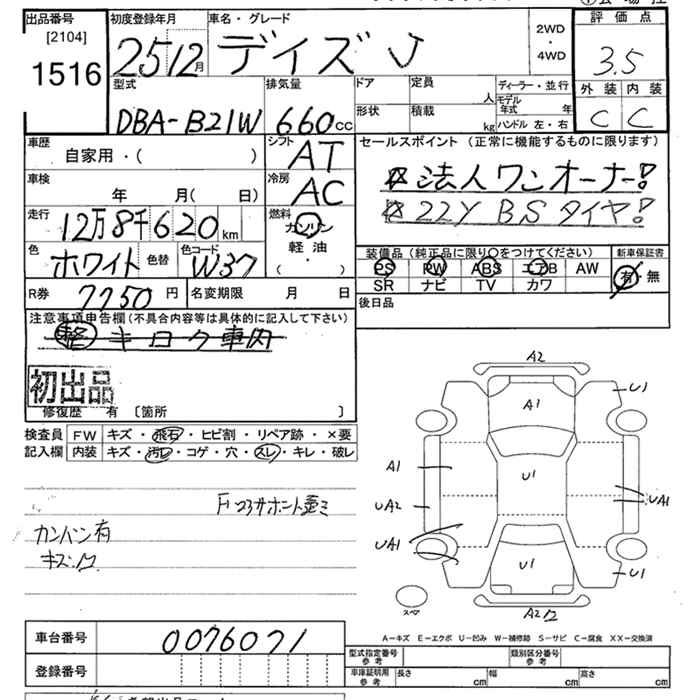 出品番号
[2104]
1516
初度登録年月
25 12月
車名・グレード
デイズ J
2WD
・
4WD
評価点
3.5
外装 内装
C C
型式
DBA-B21W
排気量
660cc
ドア
定員
人
形状
積載
kg
ディーラー・並行
モデル年式 年
ハンドル 左・右
車歴
自家用・( )
シフト
AT
セールスポイント (正常に機能するものに限ります)
法人ワンオーナー!
22Y BSタイヤ!
車検
年 月( 日)
冷房
AC
走行
12万8千620km
燃料
ガソリン
軽油
( ・ )
色
ホワイト
色替
色コード
W37
装備品 (純正品に限り○をつけてください)
PS PW ABS エアB AW
SR ナビ TV カワ
新車保証書
有・無
R券 7750円
名変期限 月 日
後日品
注意事項申告欄 (不具合内容等は具体的に記入して下さい)
整 キロク車内
初出品
修復歴 有 〔箇所 〕
検査員 FW キズ・飛石・ヒビ割・リペア跡・×要
記入欄 内装 キズ・汚レ・コゲ・穴・スレ・キレ・破レ
カンバン有
A2
A1
U1
A1
U1
UA2
UA1
UA1
U1
U1
スペア
A2
A-キズ E-エクボ U-凹み W-補修跡 S-サビ C-腐食 XX-交換済
車台番号
0076071
登録番号
型式指定番号
参考
類別区分番号
参考
車庫証明用
参考
長さ cm
幅 cm
高さ cm